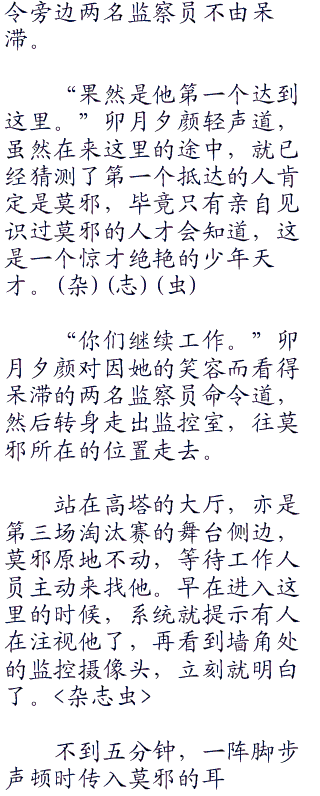 令旁边两名监察员不由呆
滞。
“果然是他第一个达到
这里。”卯月夕颜轻声道，
虽然在来这里的途中，就已
经猜测了第一个抵达的人肯
定是莫邪，毕竟只有亲自见
识过莫邪的人才会知道，这
是一个惊才绝艳的少年天
才。(杂)(志)(虫)
“你们继续工作。”卯
月夕颜对因她的笑容而看得
呆滞的两名监察员命令道，
然后转身走出监控室，往莫
邪所在的位置走去。
站在高塔的大厅，亦是
第三场淘汰赛的舞台侧边，
莫邪原地不动，等待工作人
员主动来找他。早在进入这
里的时候，系统就提示有人
在注视他了，再看到墙角处
的监控摄像头，立刻就明白
了。<杂志虫>
不到五分钟，一阵脚步
声顿时传入莫邪的耳